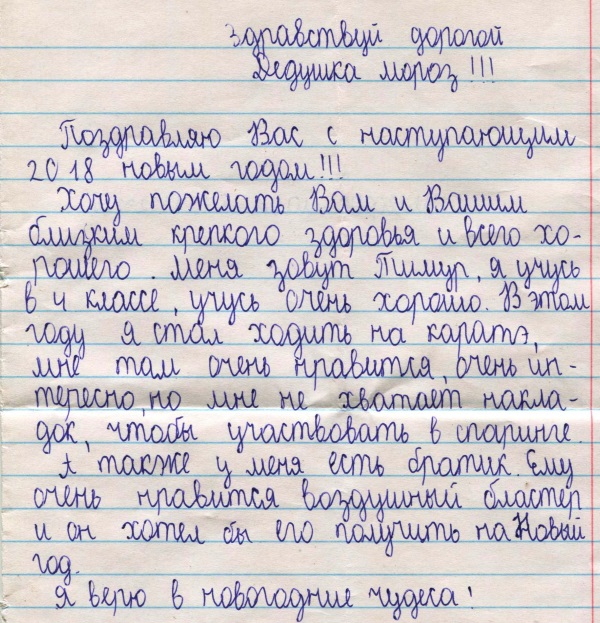 Здравствуй дорогой
Дедушка мороз!!!
Поздравляю Вас с наступающим
2018 новым годом!!!
Хочу пожелать Вам и Вашим
близким крепкого здоровья и всего хо-
рошего. Меня зовут Тимур, я учусь
в 4 классе, учусь очень хорошо. В этом
году я стал ходить на каратэ,
мне там очень нравится, очень ин-
тересно, но мне не хватает накла-
док, чтобы участвовать в спаринге.
А также у меня есть братик. Ему
очень нравится воздушный бластер
и он хотел бы его получить на Новый
год.
Я верю в новогодние чудеса!